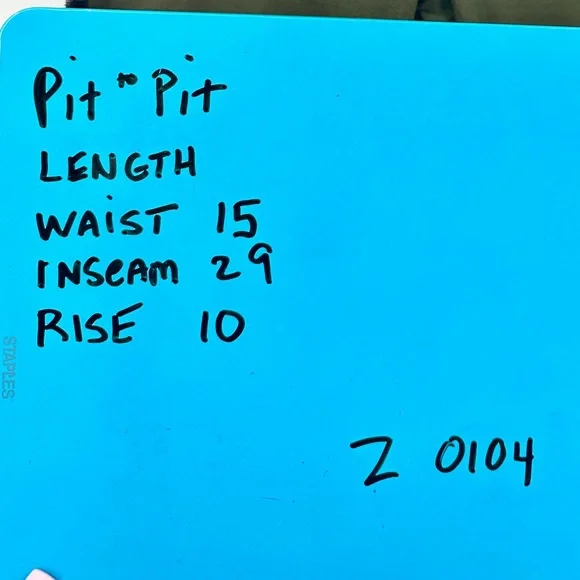 Pit to Pit
LENGTH
WAiST 15
INSeAM 29
RISE 10
STAPLES
Z 0104